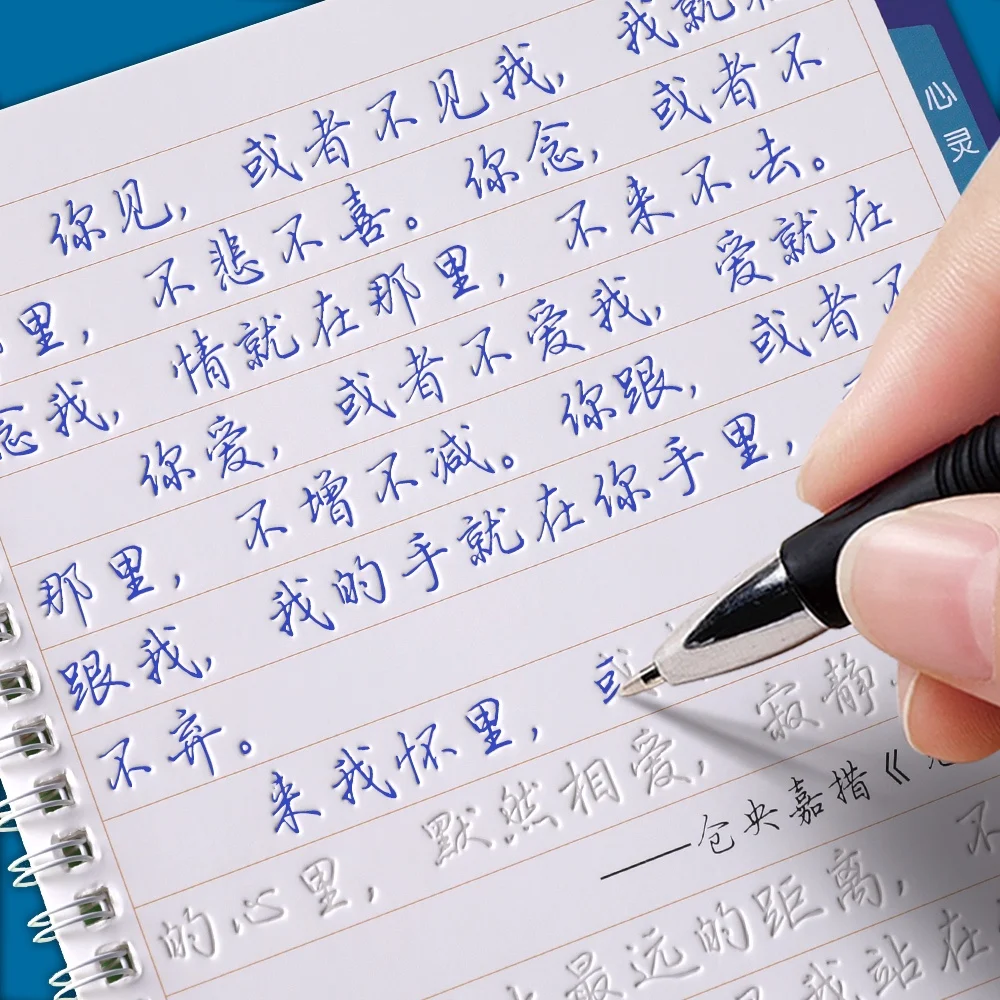 你见，或者不见我，我就在
里，不悲不喜。你念，或者不
念我，情就在那里，不来不去。
你爱，或者不爱我，爱就在
那里，不增不减。你跟，或者不
跟我，我的手就在你手里，
不弃。
来我怀里，或
的心里，默然相爱，寂静
——仓央嘉措《
最远的距离，不
我站在
心灵